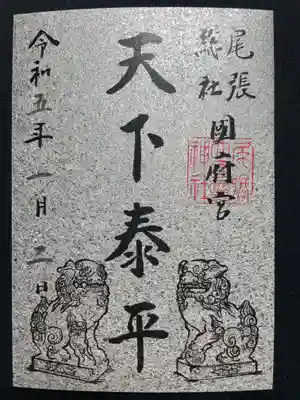 尾張
総社
國府宮
天下泰平
令和五年一月二日